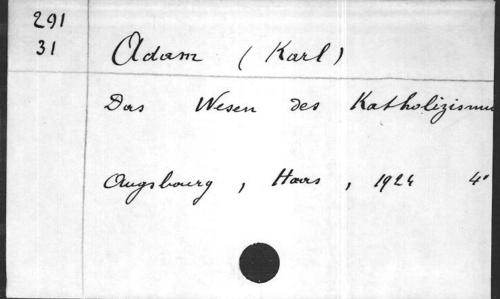 291
31
Adam (Karl)
Das Wesen des Katholizismu
Augsbourg, Haas, 1924 4°